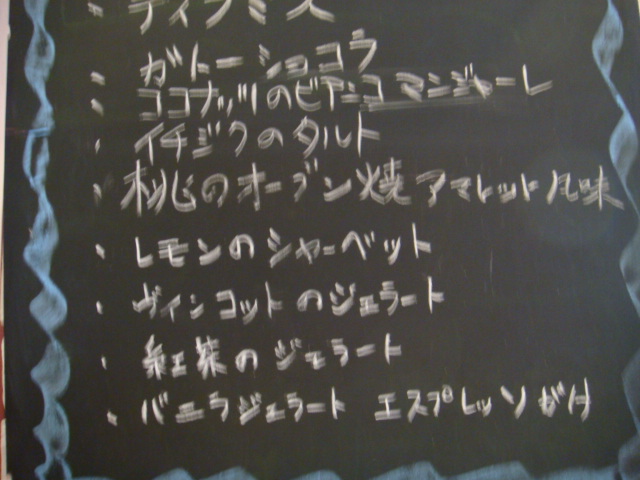 ・ティラミス
・ガトーショコラ
・ココナッツのビアンコマンジャーレ
・イチジクのタルト
・桃のオーブン焼アマレット風味
・レモンのシャーベット
・ヴィンコットのジェラート
・紅茶のジェラート
・バニラジェラート エスプレッソがけ